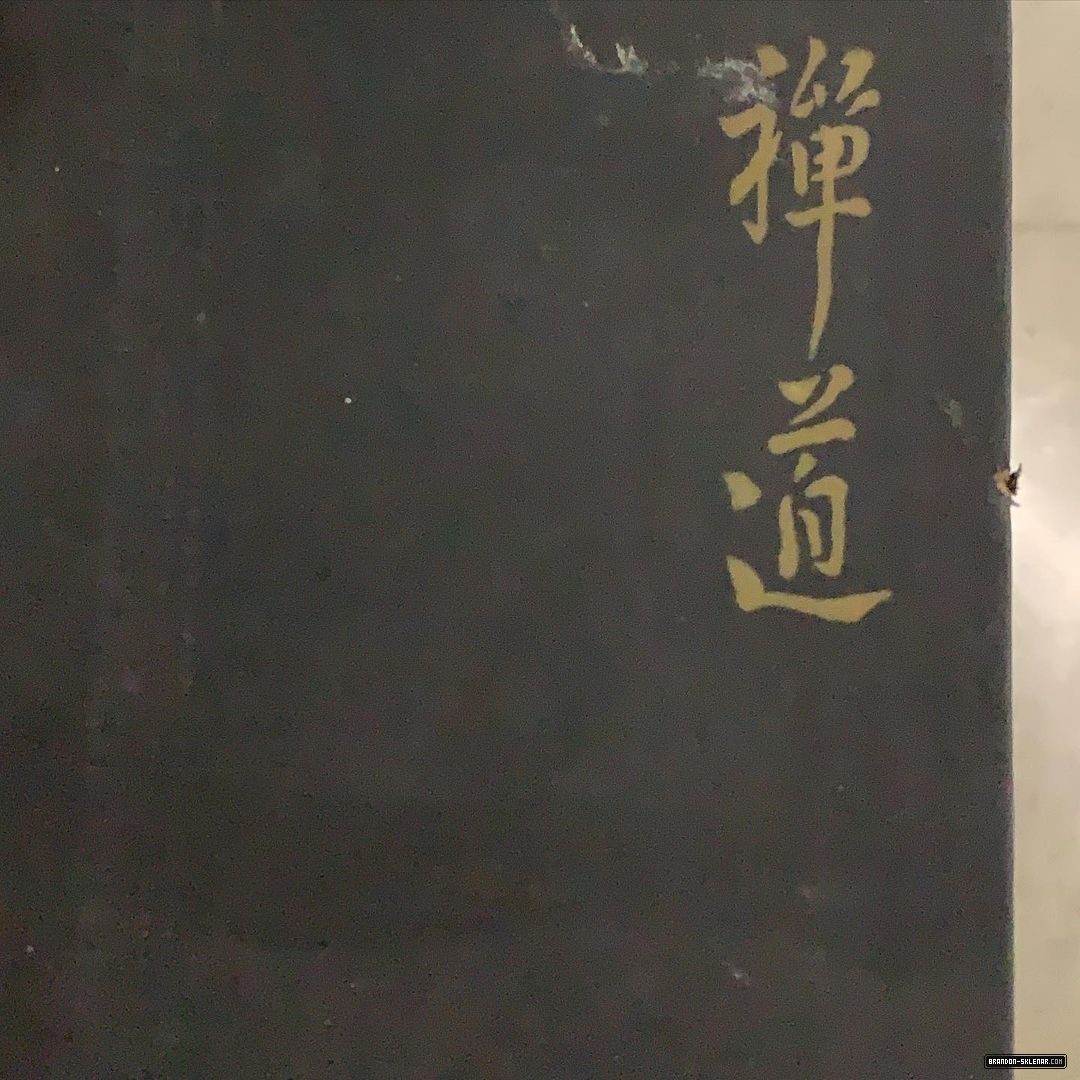 禪道
BRANDON-SKLENAR.COM